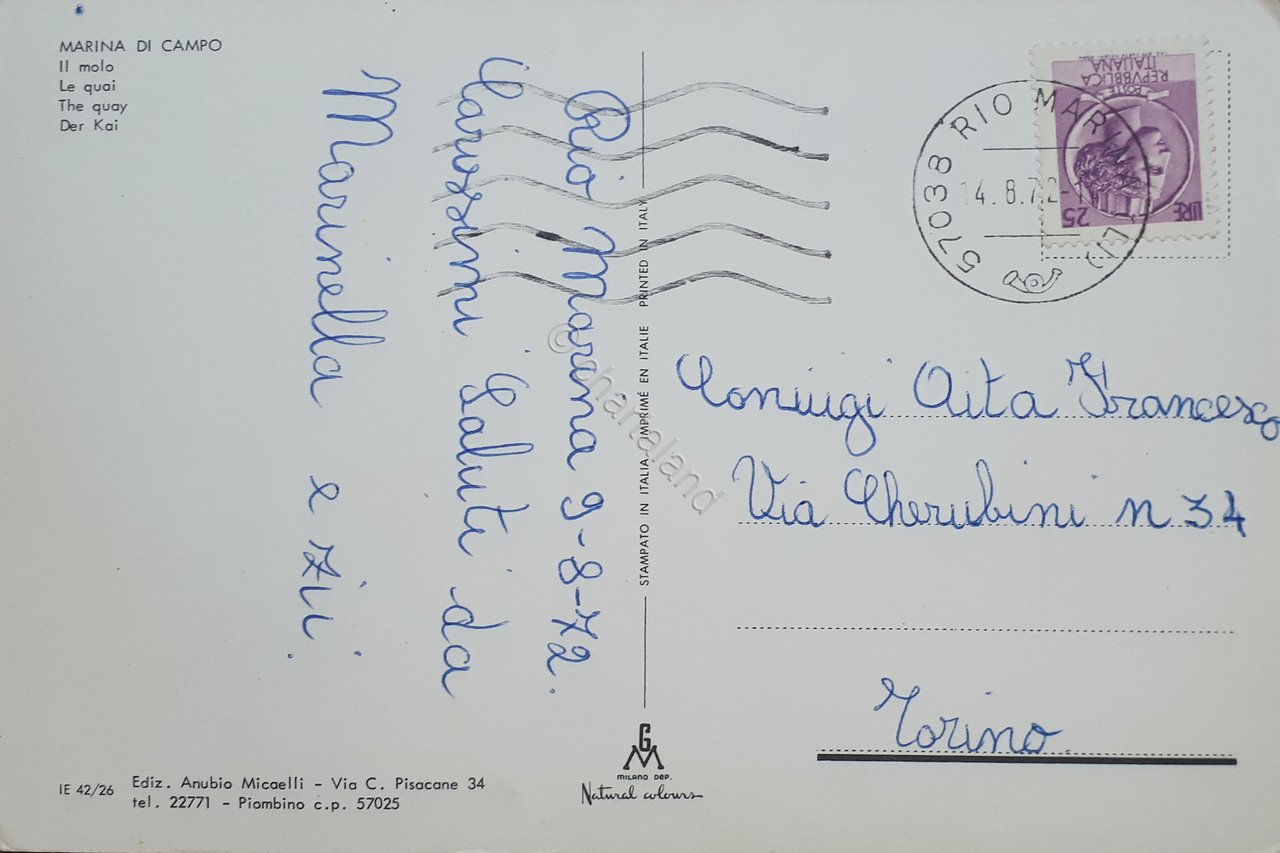 MARINA DI CAMPO
Il molo
Le quai
The quay
Der Kai
Rio Marina 9-8-72.
Carissimi Saluti da
Marinella e zii.
STAMPATO IN ITALIA IMPRIMÉ EN ITALIE PRINTED IN ITALY
57038 RIO MARINA (LI)
14.8.72
POSTE
REPVBBLICA
ITALIANA
LIRE 25
Coniugi Aita Francesco
Via Cherubini n 34
Torino.
GM
MILANO DEP.
Natural colours
IE 42/26
Ediz. Anubio Micaelli - Via C. Pisacane 34
tel. 22771 - Piombino c.p. 57025
© chartaland